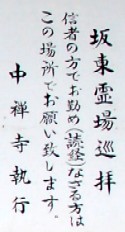 坂東霊場巡拝
信者の方でお勤め(読経)なざる方は
この場所でお願い致します。
中禅寺執行